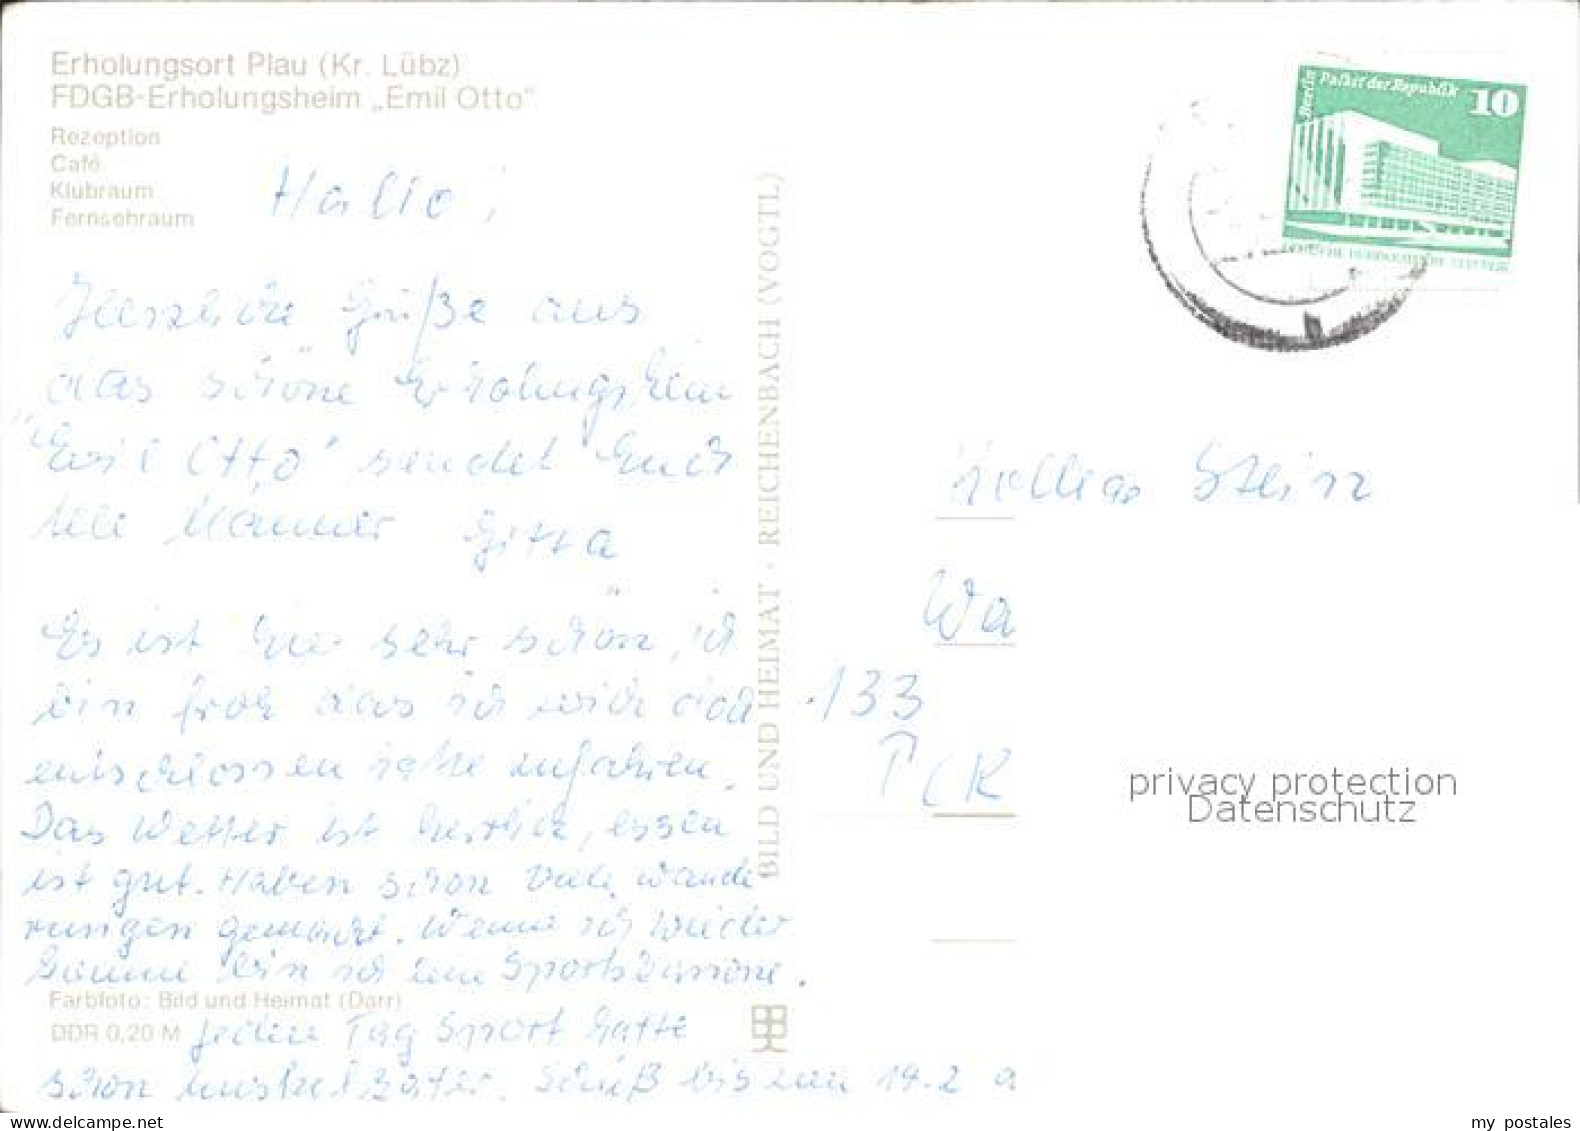 Erholungsort Plau (Kr. Lübz)
FDGB-Erholungsheim „Emil Otto"
Rezeption
Café
Klubraum
Fernsehraum
Hallo!
Herzliche Grüße aus
das schöne Erholungsheim
"Emil Otto" sendet Euch
Gitta
Es ist hier sehr schön, ich
bin froh das ich mich doch
entschlossen habe
Das Wetter ist herrlich, essen
ist gut. Haben schon viele wande
rungen gemacht. Wenn ich wieder
komme bin ich eine Sportskanone.
Farbfoto: Bild und Heimat (Darr)
DDR 0,20 M
jeden Tag Sport hatte
schon Muskelkater. bis zum 14.2
BILD UND HEIMAT · REICHENBACH (VOGTL)
Berlin
Palast der Republik
10
DEUTSCHE DEMOKRATISCHE REPUBLIK
Stein
Wa
133
PCK
privacy protection
Datenschutz
my postales